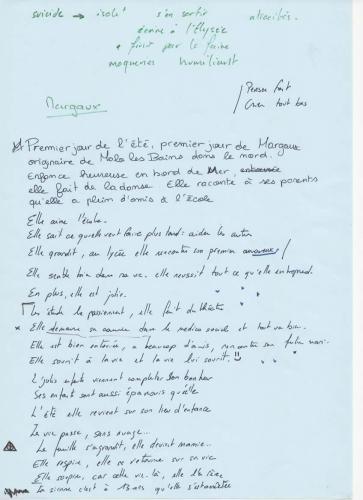 suicide → isolé s'en sortir atrocités.
écrire à l'Elysée
+ finir par le faire
moqueries humiliant
Margaux
Penser fort
Crier tout bas
Premier jour de l'été, premier jour de Margaux
originaire de Malo les Bains dans le nord.
Enfance heureuse en bord de mer,
elle fait de la danse. Elle raconte à ses parents
qu'elle a plein d'amis à l'École
Elle aime l'école.
Elle sait ce qu'elle veut faire plus tard : aider les autres
Elle grandit, au lycée elle rencontre son premier amoureux
Elle semble bien dans sa vie. elle réussit tout ce qu'elle entreprend.
En plus, elle est jolie.
Les études la passionnent, elle fait du théâtre
Elle démarre sa carrière dans le médico social et tout va bien.
Elle est bien entourée, a beaucoup d'amis, rencontre son futur mari.
Elle sourit à la vie et la vie lui sourit.
2 jolis enfants viennent compléter son bonheur
Ses enfants sont aussi épanouis qu'elle
L'été elle revient sur son lieu d'enfance
La vie passe, sans nuage...
La famille s'agrandit, elle devient mamie..
Elle respire, elle se retourne sur sa vie
Elle soupire, car cette vie-là, elle l'a rêvée
La sienne c'est à 13 ans qu'elle s'est arrêtée